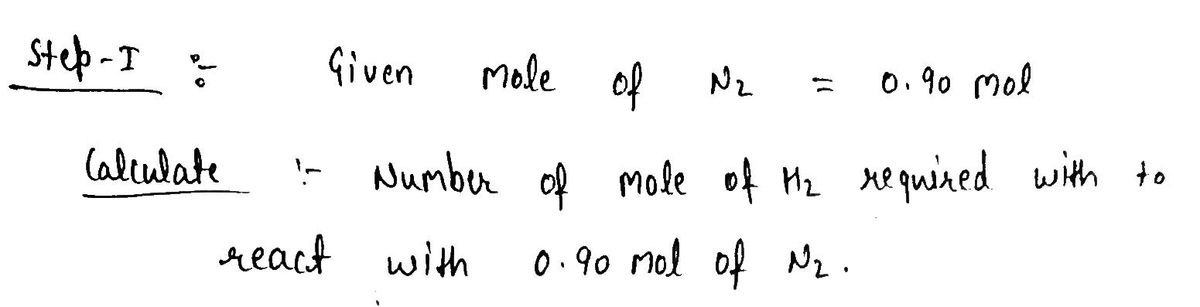 Step-I :- Given mole of N2 = 0.90 mol
Calculate :- Number of mole of H2 required with to
react with 0.90 mol of N2.